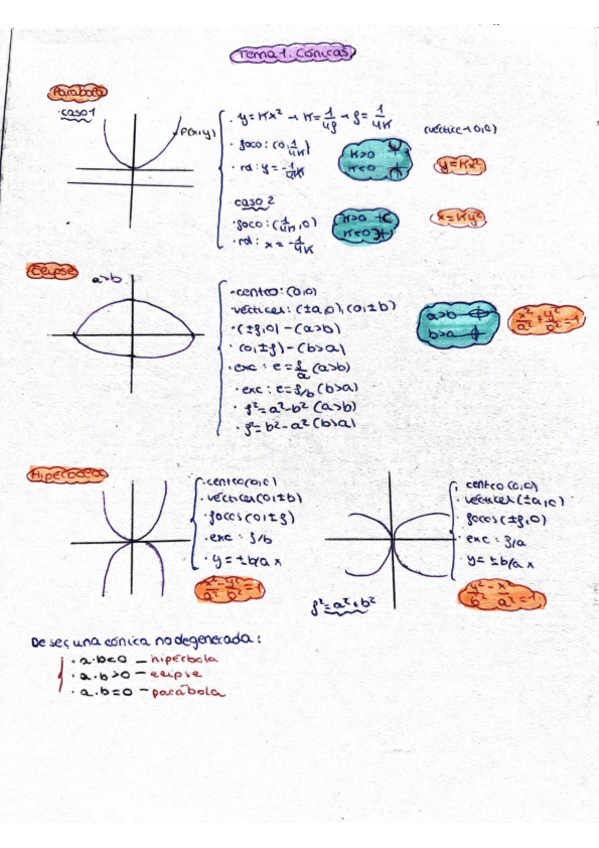 Tema 1. Cónicas
Parábola
· caso 1
P(x,y)
· y = Kx² → K = 1/4f → f = 1/4K
· foco: (0, 1/4K)
· rd: y = -1/4K
K>0
K<0
(vértice → 0,0)
y = Kx²
caso 2
· foco: (1/4K, 0)
· rd: x = -1/4K
K>0
K<0
x = Ky²
Elipse
a>b
· centro: (0,0)
vértices: (±a,0), (0,±b)
· (±f,0) - (a>b)
· (0,±f) - (b>a)
· exc: e = f/a (a>b)
· exc: e = f/b (b>a)
· f² = a² - b² (a>b)
· f² = b² - a² (b>a)
a>b
b>a
x²/a² + y²/b² = 1
Hipérbola
· centro (0,0)
· vértices (0,±b)
· focos (0,±f)
· exc: f/b
· y = ±b/a x
x²/a² - y²/b² = 1
· centro (0,0)
· vértices (±a,0)
· focos (±f,0)
· exc: f/a
y = ±b/a x
y²/b² - x²/a² = 1
f² = a² + b²
De ser una cónica no degenerada:
· a·b<0 — hipérbola
· a·b>0 — elipse
· a·b=0 — parábola